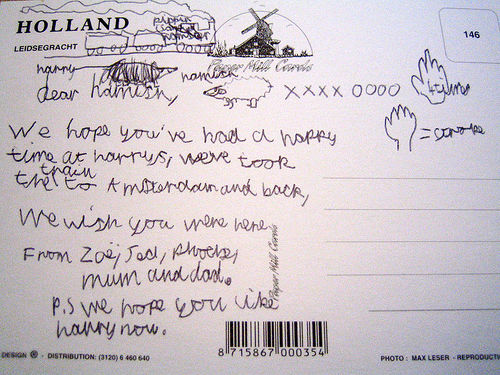 HOLLAND
LEIDSEGRACHT
pippin
hamster
146
Paper Mill Cards
harry
hamish
dear hamish,
XXXX OOOO
4 times
= stroke
We hope you've had a happy
time at harry's, we took
the train to Amsterdam and back,
We wish you were here.
From Zoë, Jed, phoebe,
mum and dad.
P.S we hope you like
harry now.
Paper Mill Cards
8 715867 000354
DESIGN ® - DISTRIBUTION: (3120) 6 460 640
PHOTO : MAX LESER - REPRODUCTI